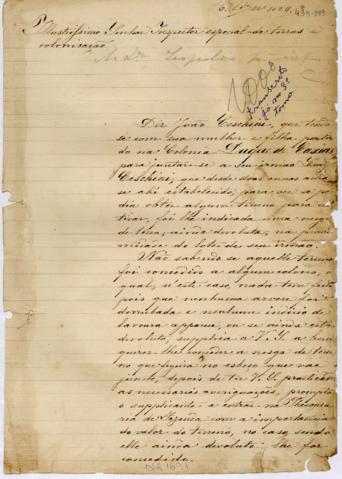 Illustrissimo Senhor Inspector especial de terras e
colonisação
1098
transcripto
Diz João Ceschini, que
se com sua mulher e filha
do na Colonia Duque de Caxias
para juntar-se a seu irmão
Ceschini, que desde dous annos
se ahi estabelecido, para ver se po-
dia obter algum terreno para
tivar, foi lhe indicada uma nesga
de terra, ainda devoluta, na proxi-
midade do lote de seu irmão.
Não sabendo se aquelle terreno
foi concedido a algum colono, o
qual, n'este caso, nada teria feito
pois que nenhuma arvore foi
derrubada e nenhum indicio de
lavoura apparece, ou se ainda está
devoluto, supplica a V. S. a bem
querer lhe conceder a nesga de terra
no que figura no esboço que vae
junto, depois de ter V. S. practicado
as necessarias averiguações, prompto
o supplicante a entrar na Thesoura-
ria de Fazenda com a importancia
do valor do terreno, no caso, sendo
elle ainda devoluto lhe for
concedido.